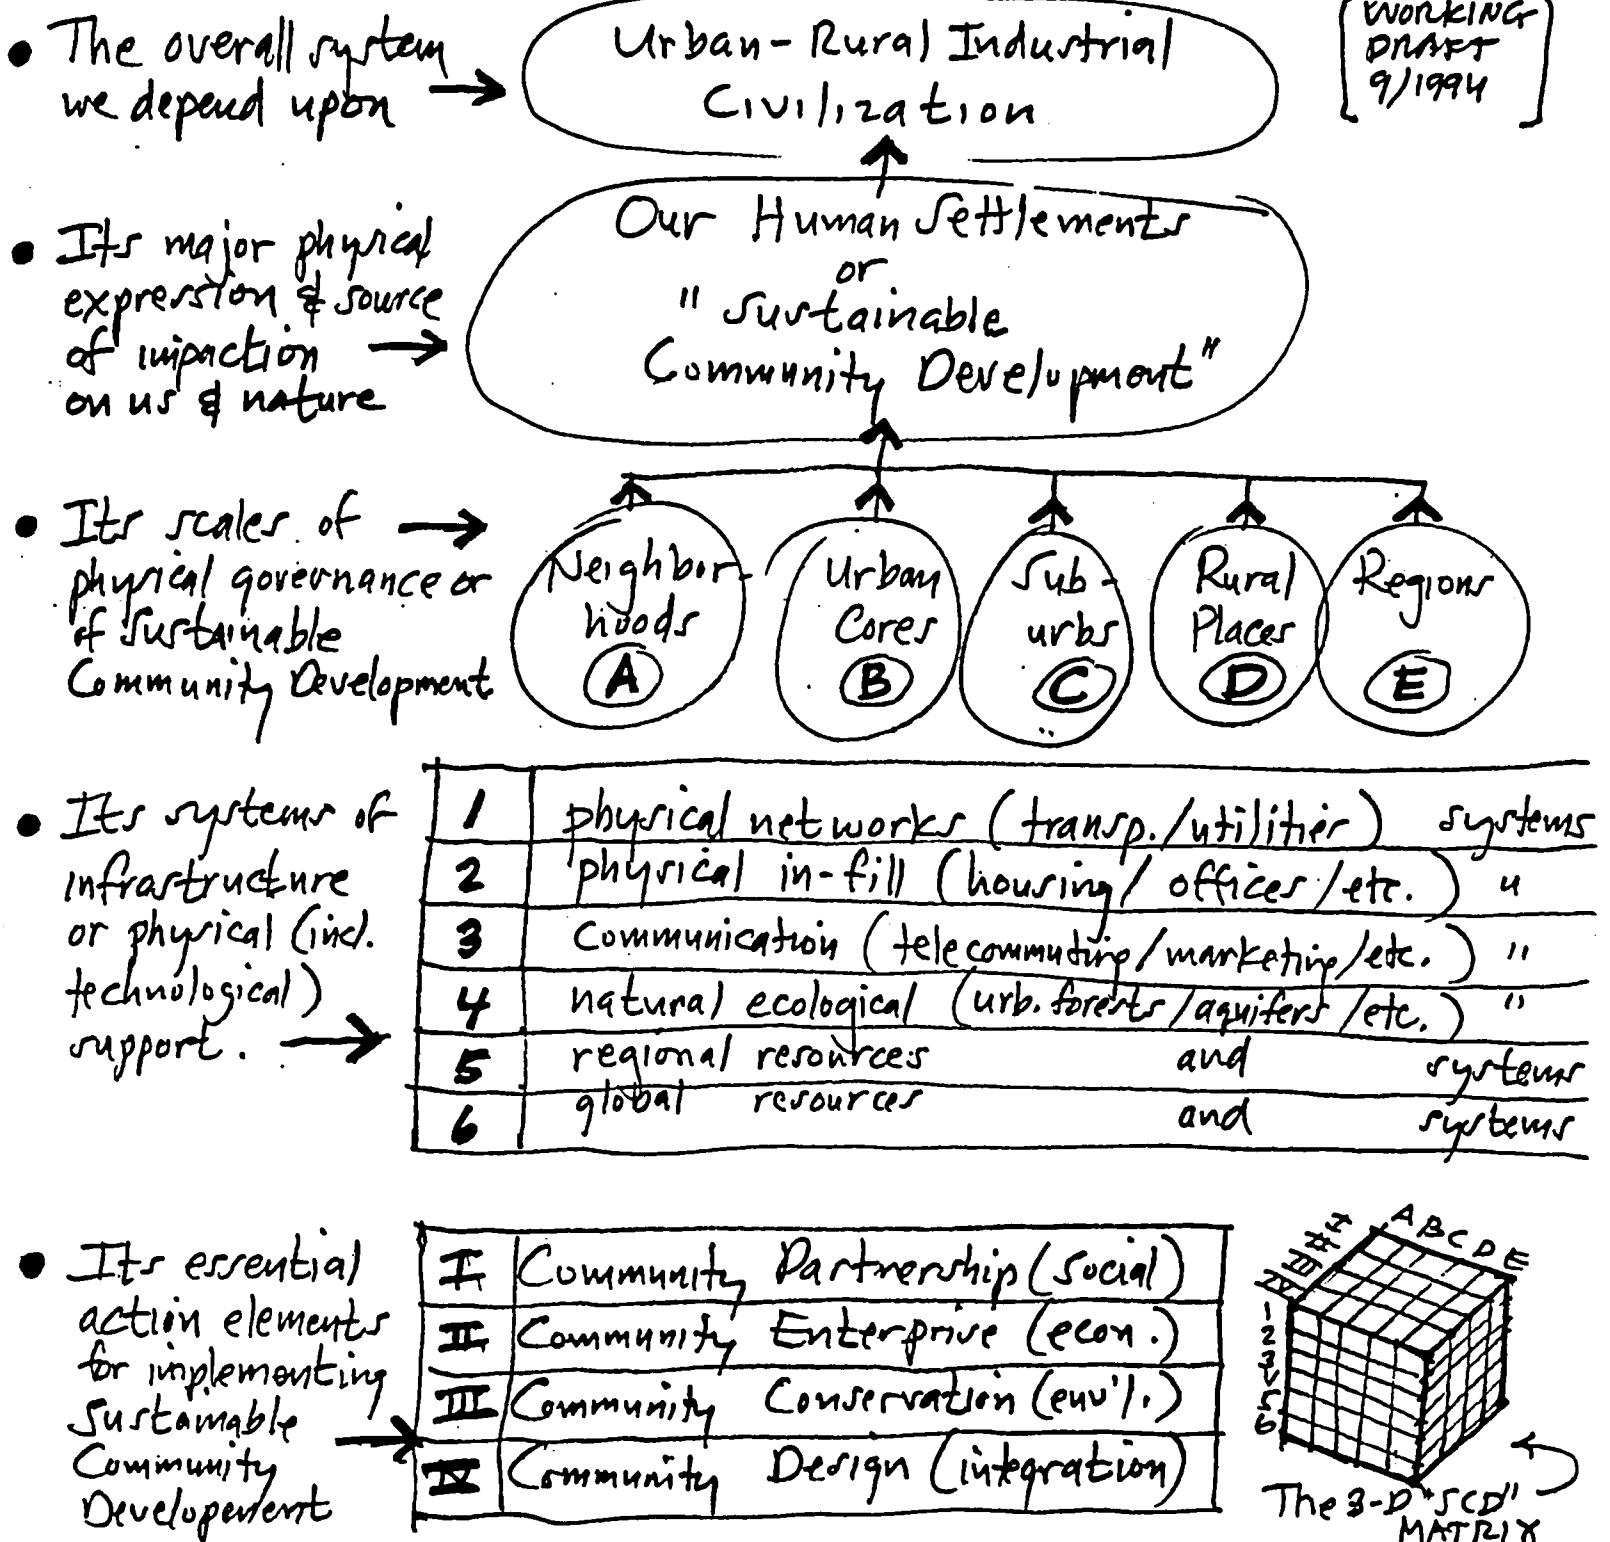 • The overall system
we depend upon →
Urban-Rural Industrial
Civilization
[WORKING
DRAFT
9/1994]
• Its major physical
expression & source
of impaction →
on us & nature
Our Human Settlements
or
"Sustainable
Community Development"
• Its scales of →
physical governance or
of sustainable
Community Development
Neighbor-
hoods
A
Urban
Cores
B
Sub-
urbs
C
Rural
Places
D
Regions
E
• Its systems of
infrastructure
or physical (incl.
technological)
support. →
1 physical networks (transp./utilities) systems
2 physical in-fill (housing/offices/etc.) "
3 communication (telecommuting/marketing/etc.) "
4 natural ecological (urb. forests/aquifers/etc.) "
5 regional resources and systems
6 global resources and systems
• Its essential
action elements
for implementing
Sustainable →
Community
Development
I Community Partnership (social)
II Community Enterprise (econ.)
III Community Conservation (env'l.)
IV Community Design (integration)
A B C D E
I
II
III
IV
1
2
3
4
5
6
The 3-D "SCD"
MATRIX